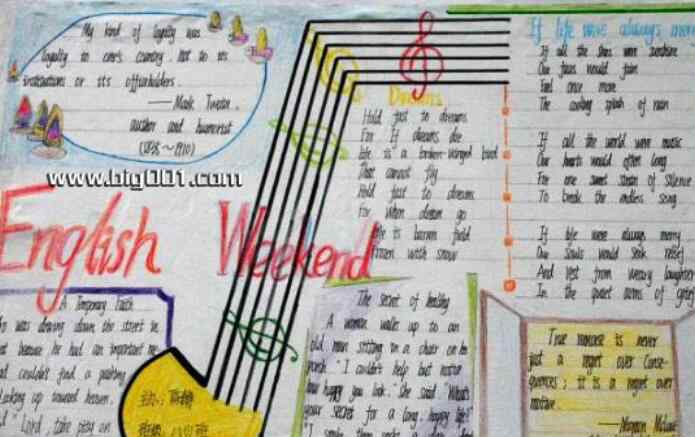 My kind of loyalty was
loyalty to one's country, not to its
institutions or its officeholders.
—Mark Twain,
author and humorist
www.big001.com
English Weekend
Dreams
Hold fast to dreams
For If dreams die
Life is a broken-winged bird
That cannot fly
Hold fast to dreams
For when dream go
Life is barren field
Frozen with snow
If life were always merr
If all the skies were sunshine
Our faces would fain
Feel once more
The cooling splash of rain
If all the world were music
Our hearts would often long
For one sweet strain of silence
To break the endless song
If life were always merry
Our souls would seek relief
And rest from weary laughter
In the quiet arms of grie
A Temporary Faith
was driving down the street in
because he had an important me
couldn't find a parking
Looking up toward heaven,
"Lord, take pity on
The secret of healthy
A woman walks up to an
old man sitting in a chair on his
porch. "I couldn't help but notice
how happy you look." She said "What's
your secret for a long, happy life?"
"I smoke
True remorse is never
just a regret over conse-
quences; it is a regret over
motive.